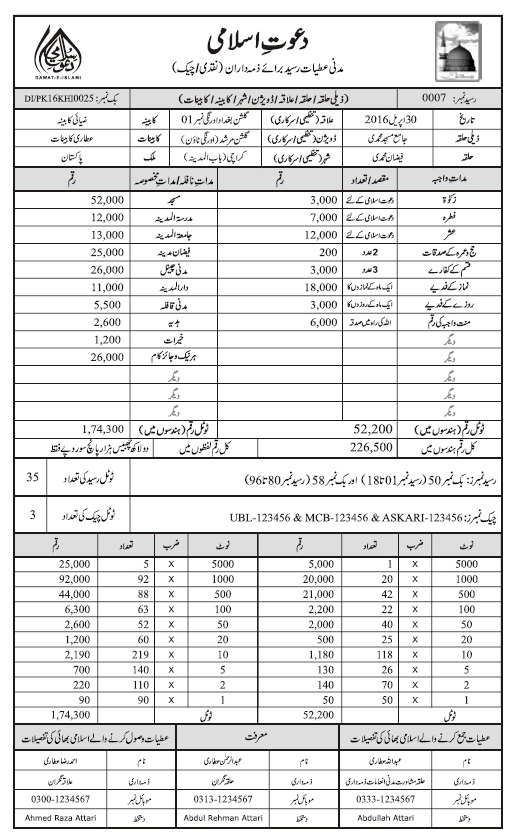 دعوتِ اسلامی
DAWAT-E-ISLAMI
مدنی عطیات رسید برائے ذمہ داران (نقدی/چیک)
رسید نمبر: 0007 (ذیلی حلقہ/حلقہ/علاقہ/ڈویژن/شہر/کابینہ/کابینات) بک نمبر: DI/PK16KHI0025
تاریخ 30 اپریل 2016 علاقہ (تنظیمی/سرکاری) گلشن بغداد اورنگی نمبر 01 کابینہ ضیائی کابینہ
ذیلی حلقہ جامع مسجد محمدی ڈویژن (تنظیمی/سرکاری) گلشن مرشد (اورنگی ٹاؤن) کابینات عطاری کابینات
حلقہ فیضان محمدی شہر (تنظیمی/سرکاری) کراچی (باب المدینہ) ملک پاکستان
مداتِ واجبہ مقصد/تعداد رقم مداتِ نافلہ/مداتِ مخصوصہ رقم
زکوٰۃ دعوت اسلامی کے لئے 3,000 مسجد 52,000
فطرہ دعوت اسلامی کے لئے 7,000 مدرسۃ المدینہ 12,000
عشر دعوت اسلامی کے لئے 12,000 جامعۃ المدینہ 13,000
حج و عمرہ کے صدقات 2 عدد 200 فیضان مدینہ 25,000
قسم کے کفارے 3 عدد 3,000 مدنی چینل 26,000
نماز کے فدیے ایک ماہ کے نمازوں کا 18,000 دار المدینہ 11,000
روزے کے فدیے ایک ماہ کے روزوں کا 3,000 مدنی قافلہ 5,500
منت واجبہ کی رقم اللہ کی راہ میں صدقہ 6,000 ہدیہ 2,600
دیگر خیرات 1,200
دیگر ہر نیک و جائز کام 26,000
دیگر دیگر
دیگر دیگر
دیگر دیگر
ٹوٹل رقم (ہندسوں میں) 52,200 ٹوٹل رقم (ہندسوں میں) 1,74,300
کل رقم ہندسوں میں 226,500 کل رقم لفظوں میں دو لاکھ چھبیس ہزار پانچ سو روپے فقط
رسید نمبرز: بک نمبر 50 (رسید نمبر 01 تا 18) اور بک نمبر 58 (رسید نمبر 80 تا 96) ٹوٹل رسید کی تعداد 35
چیک نمبرز: UBL-123456 & MCB-123456 & ASKARI-123456 ٹوٹل چیک کی تعداد 3
نوٹ ضرب تعداد رقم نوٹ ضرب تعداد رقم
5000 x 1 5,000 5000 x 5 25,000
1000 x 20 20,000 1000 x 92 92,000
500 x 42 21,000 500 x 88 44,000
100 x 22 2,200 100 x 63 6,300
50 x 40 2,000 50 x 52 2,600
20 x 25 500 20 x 60 1,200
10 x 118 1,180 10 x 219 2,190
5 x 26 130 5 x 140 700
2 x 70 140 2 x 110 220
1 x 50 50 1 x 90 90
ٹوٹل 52,200 ٹوٹل 1,74,300
عطیات جمع کرنے والے اسلامی بھائی کی تفصیلات معرفت عطیات وصول کرنے والے اسلامی بھائی کی تفصیلات
نام عبداللہ عطاری نام عبدالرحمٰن عطاری نام احمد رضا عطاری
ذمہ داری حلقہ مشاورت مدنی انعامات ذمہ داری ذمہ داری حلقہ نگران ذمہ داری علاقہ نگران
موبائل نمبر 0333-1234567 موبائل نمبر 0313-1234567 موبائل نمبر 0300-1234567
دستخط Abdullah Attari دستخط Abdul Rehman Attari دستخط Ahmed Raza Attari